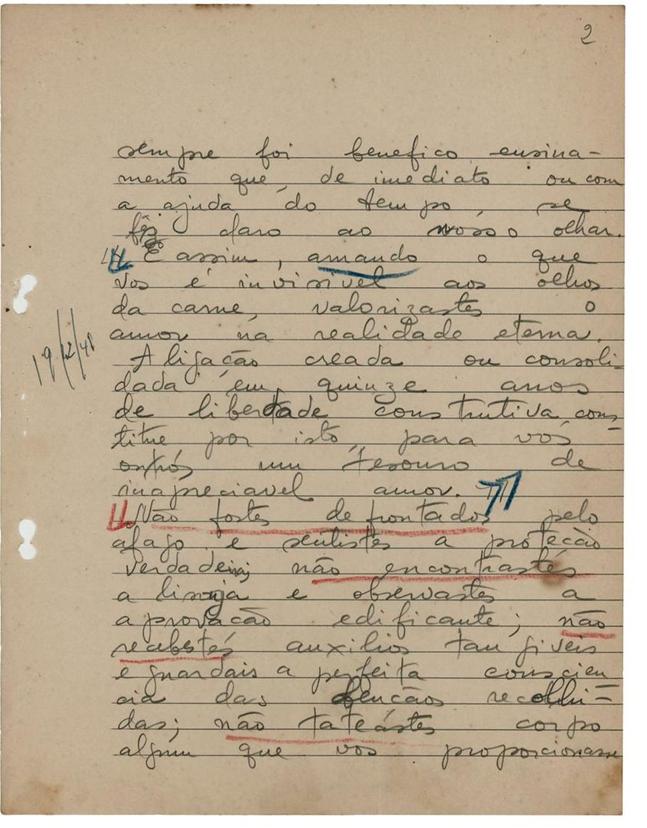 2
sempre foi benefico ensina-
mento que, de imediato ou com
a ajuda do tempo, se
fêz claro ao nosso olhar.
E assim, amando o que
vos é invisivel aos olhos
da carne, valorizastes o
amor na realidade eterna.
19/2/48
A ligação creada ou consoli-
dada em quinze anos
de liberdade construtiva, cons-
titue por isto, para vós
outros um tesouro de
inapreciavel amor.
Não fostes defrontados pelo
afago e sentistes a proteção
verdadeira; não encontrastes
a lisonja e observastes a
aprovação edificante; não
recebestes auxilios tangiveis
e guardais a perfeita conscien
cia das bençãos recolhi=
das; não tateástes corpo
algum que vos proporcionasse